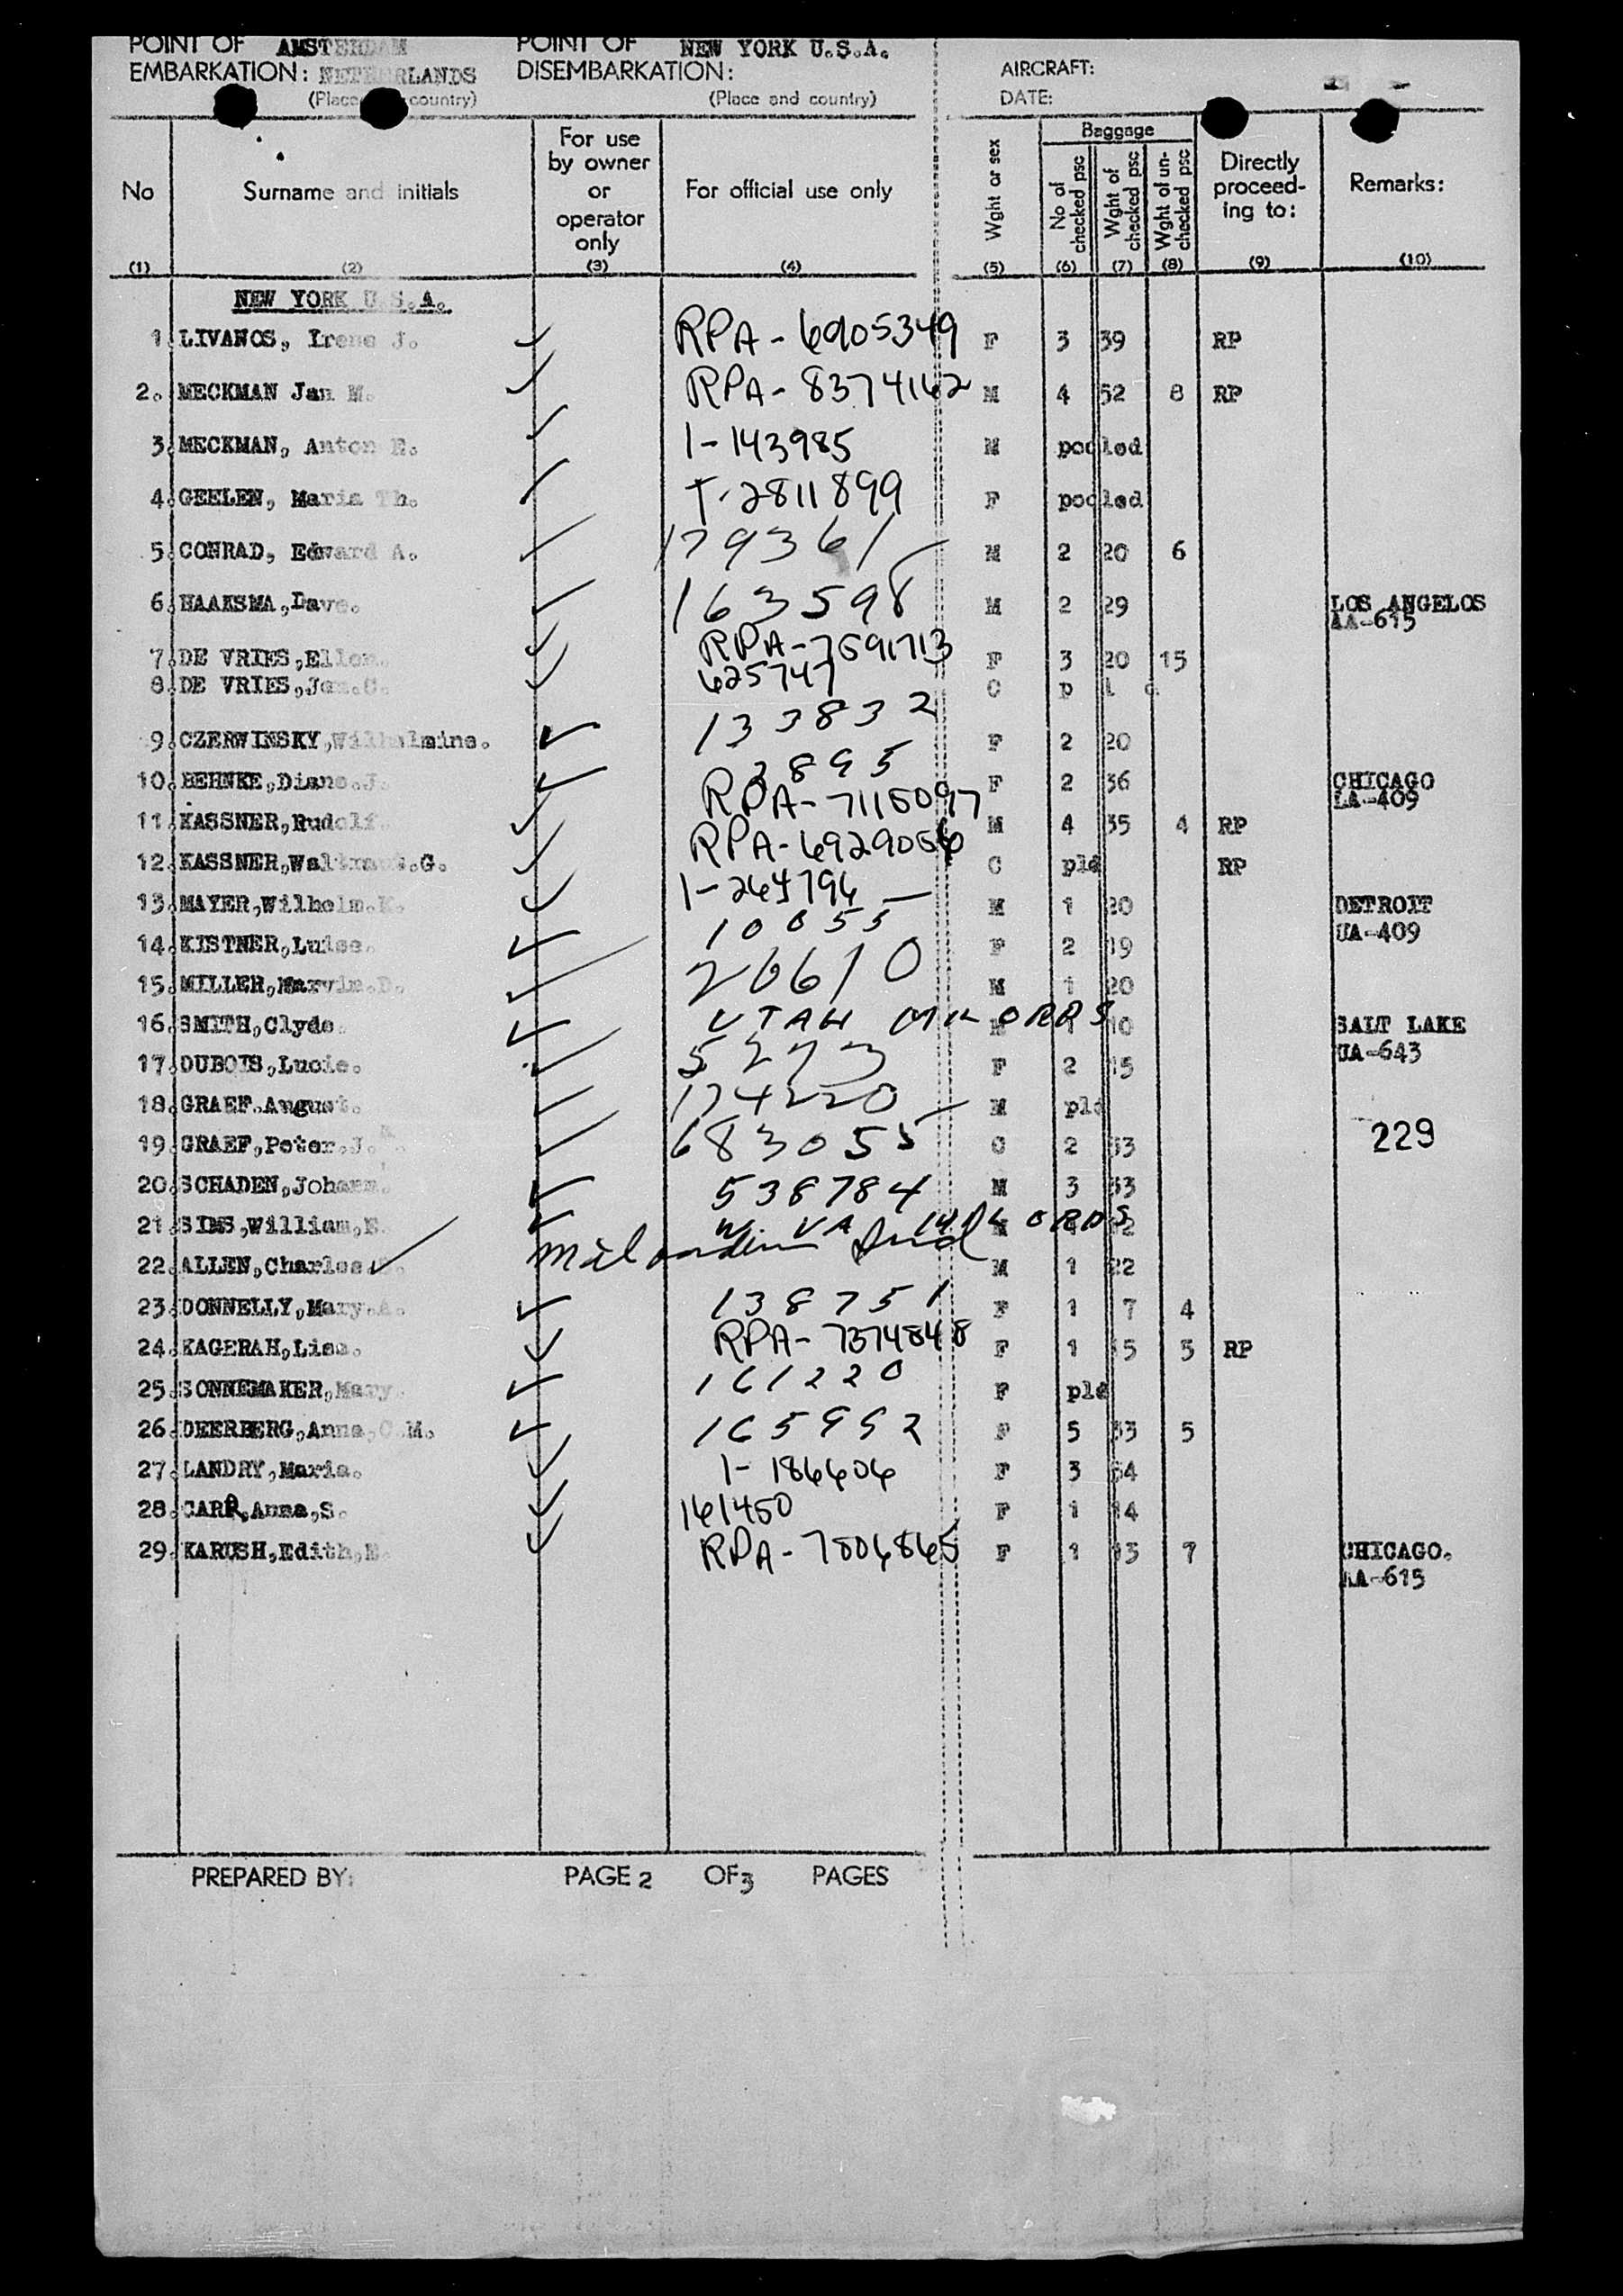 POINT OF AMSTERDAM POINT OF NEW YORK U.S.A.
EMBARKATION: NETHERLANDS DISEMBARKATION: AIRCRAFT:
(Place country) (Place and country) DATE:
No Surname and initials For use by owner or operator only For official use only Wght or sex Baggage No of checked psc Wght of checked psc Wght of un-checked psc Directly proceed-ing to: Remarks:
(1) (2) (3) (4) (5) (6) (7) (8) (9) (10)
NEW YORK U.S.A.
1. LIVANOS, Irene J. RPA-6905349 F 3 39 RP
2. MECKMAN Jan M. RPA-8374162 M 4 52 8 RP
3. MECKMAN, Anton E. 1-143985 M pooled
4. GEELEN, Maria Th. T-2811899 F pooled
5. CONRAD, Edward A. 179361 M 2 20 6
6. HAAKSMA, Dave. 163598 M 2 29 LOS ANGELOS
AA-615
7. DE VRIES, Ellen. RPA-7591713 F 3 20 15
8. DE VRIES, Jan. 625747 C p l d
9. CZERWINSKY, Wilhelmine. 133832 F 2 20
10. BEHNKE, Diane. J. 3895 F 2 36 CHICAGO
11. KASSNER, Rudolf. RPA-7115097 M 4 35 4 RP
12. KASSNER, Waltraud. G. C pld RP
13. MAYER, Wilhelm. K. 1-264796 M 1 20 DETROIT
UA-409
14. KISTNER, Luise. 10055 F 2 19
15. MILLER, Marvin. D. 20610 M 1 20
16. SMITH, Clyde. UTAH MIL ORDS 10 SALT LAKE
UA-643
17. DUBOIS, Lucie. 5273 F 2 15
18. GRAEF. August. 174220 M pld
19. GRAEF, Peter. J. 683055 C 2 33 229
20. SCHADEN, Johann. 538784 M 3 33
21. SIMS, William, E. W. VA MIL ORDS
22. ALLEN, Charles Mil orders M 1 22
23. DONNELLY, Mary. A. 138751 F 1 7 4
24. KAGERAH, Lisa. RPA-7374848 F 1 15 5 RP
25. SONNEMAKER, Mary. 161220 F pld
26. DEERBERG, Anna, C.M. 165992 F 5 33 5
27. LANDRY, Maria. 1-186606 F 3 34
28. CARR, Anna, S. 161450 F 1 14
29. KARUSH, Edith, E. RPA-7806865 F 1 13 7 CHICAGO.
AA-615
PREPARED BY: PAGE 2 OF 3 PAGES